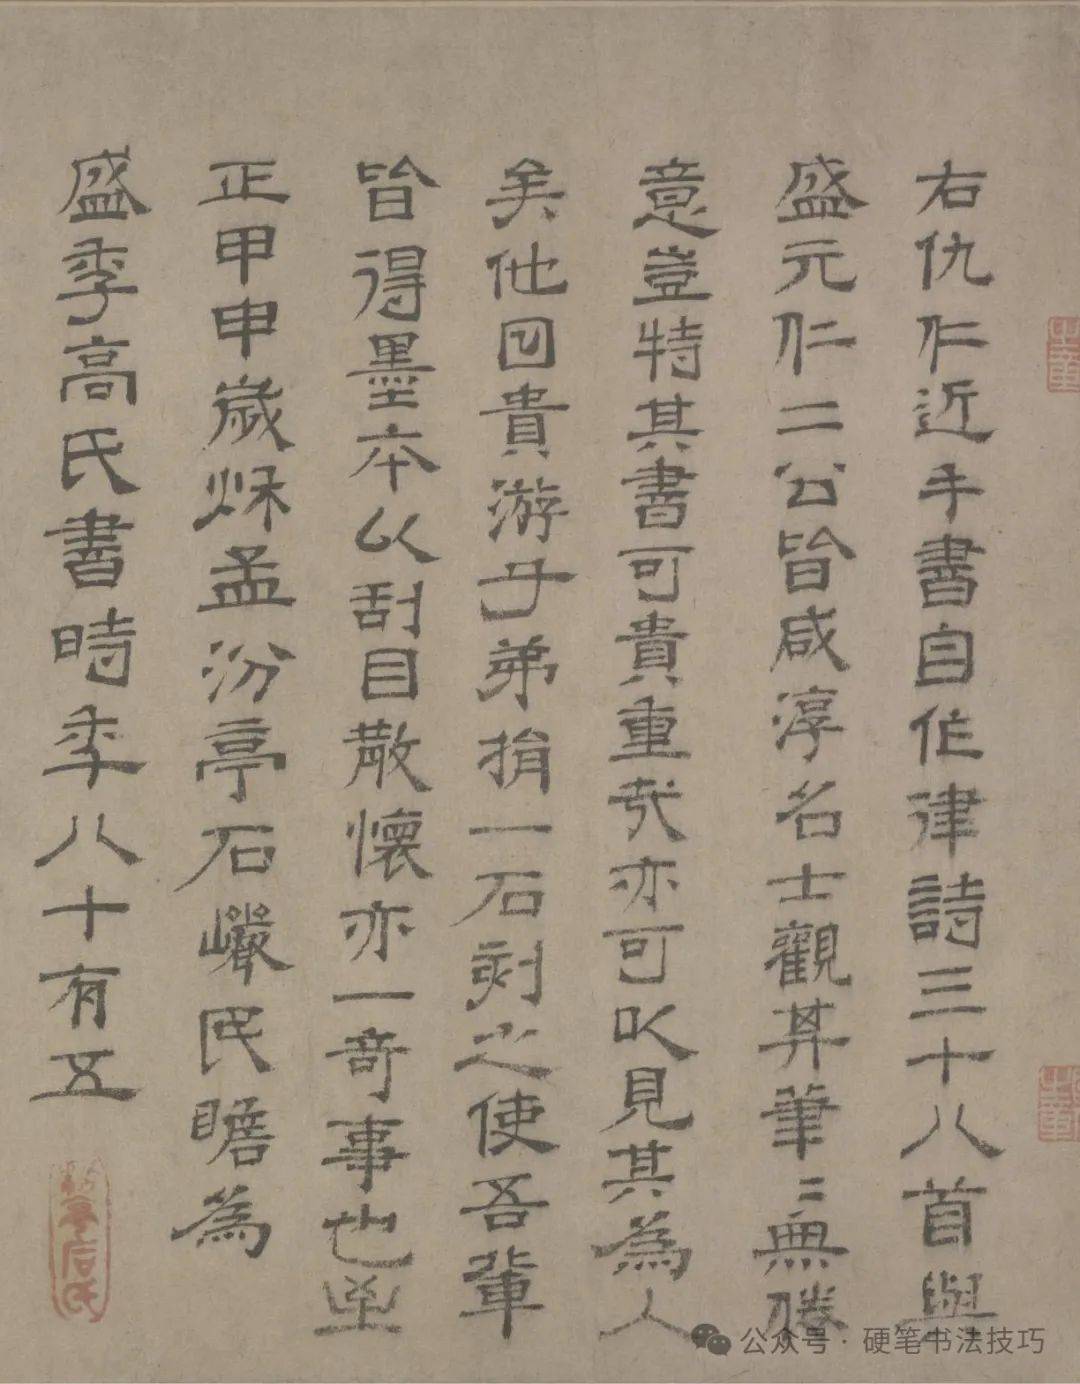 右仇仁近手書自作律詩三十八首與
盛元仁二公皆咸淳名士觀其筆〻無勝
意豈特其書可貴重哉亦可以見其為人
矣他日貴游子弟捐一石刻之使吾輩
皆得墨本以刮目散懷亦一奇事也至
正甲申歲秌孟汾亭石巖民瞻為
盛季高氏書時季八十有五
汾亭石氏
公众号·硬笔书法技巧